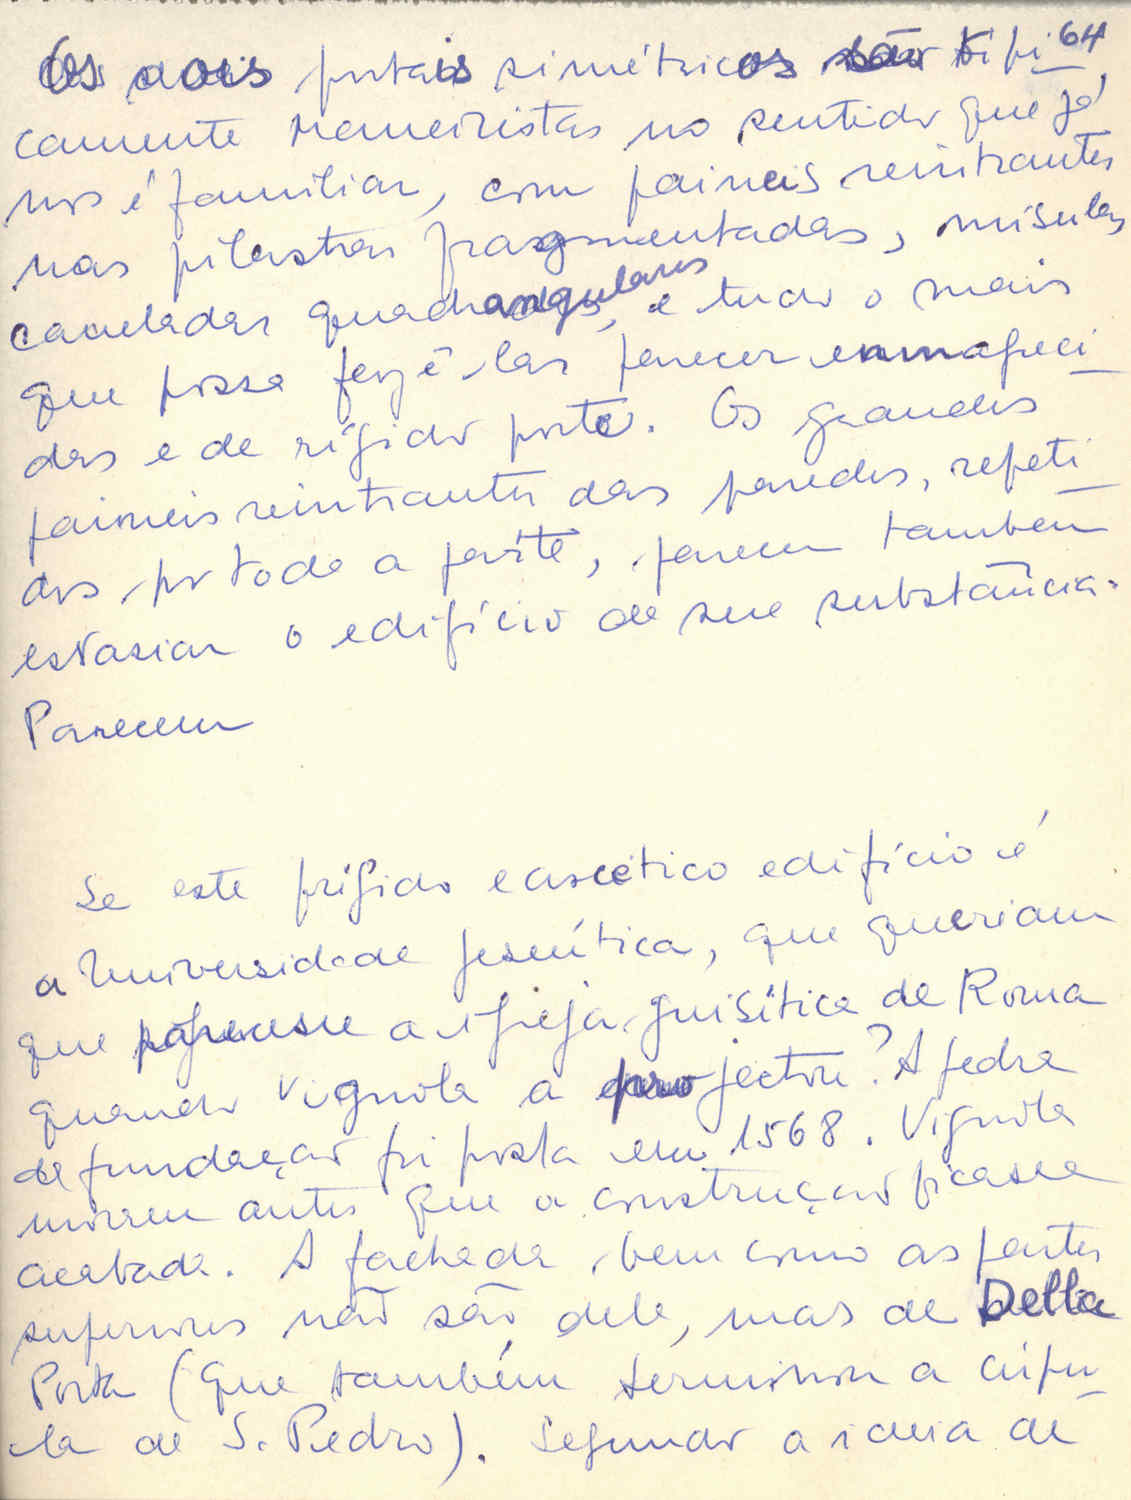 64
Os dois portais simétricos são tipi-
camente Maneiristas no sentido que já
nos é familiar, com paineis reintrantes
nas pilastras fragmentadas, mísulas
caneladas quadrangulares, e tudo o mais
que possa fazê-las parecer enmagreci-
das e de rígido porte. Os grandes
paineis reintrantes das paredes, repeti-
dos por toda a parte, parecem tambem
esvasiar o edifício de sua substância.
Parecem
Se este frígido e ascético edifício é
a Universidade Jesuítica, que queriam
que parecesse a igreja jesuítica de Roma
quando Vignola a projectou? A pedra
de fundação foi posta em 1568. Vignola
morreu antes que a construção ficasse
acabada. A fachada, bem como as partes
superiores não são dele, mas de Della
Porta (que também terminou a cúpu-
la de S. Pedro). Segundo a ideia de